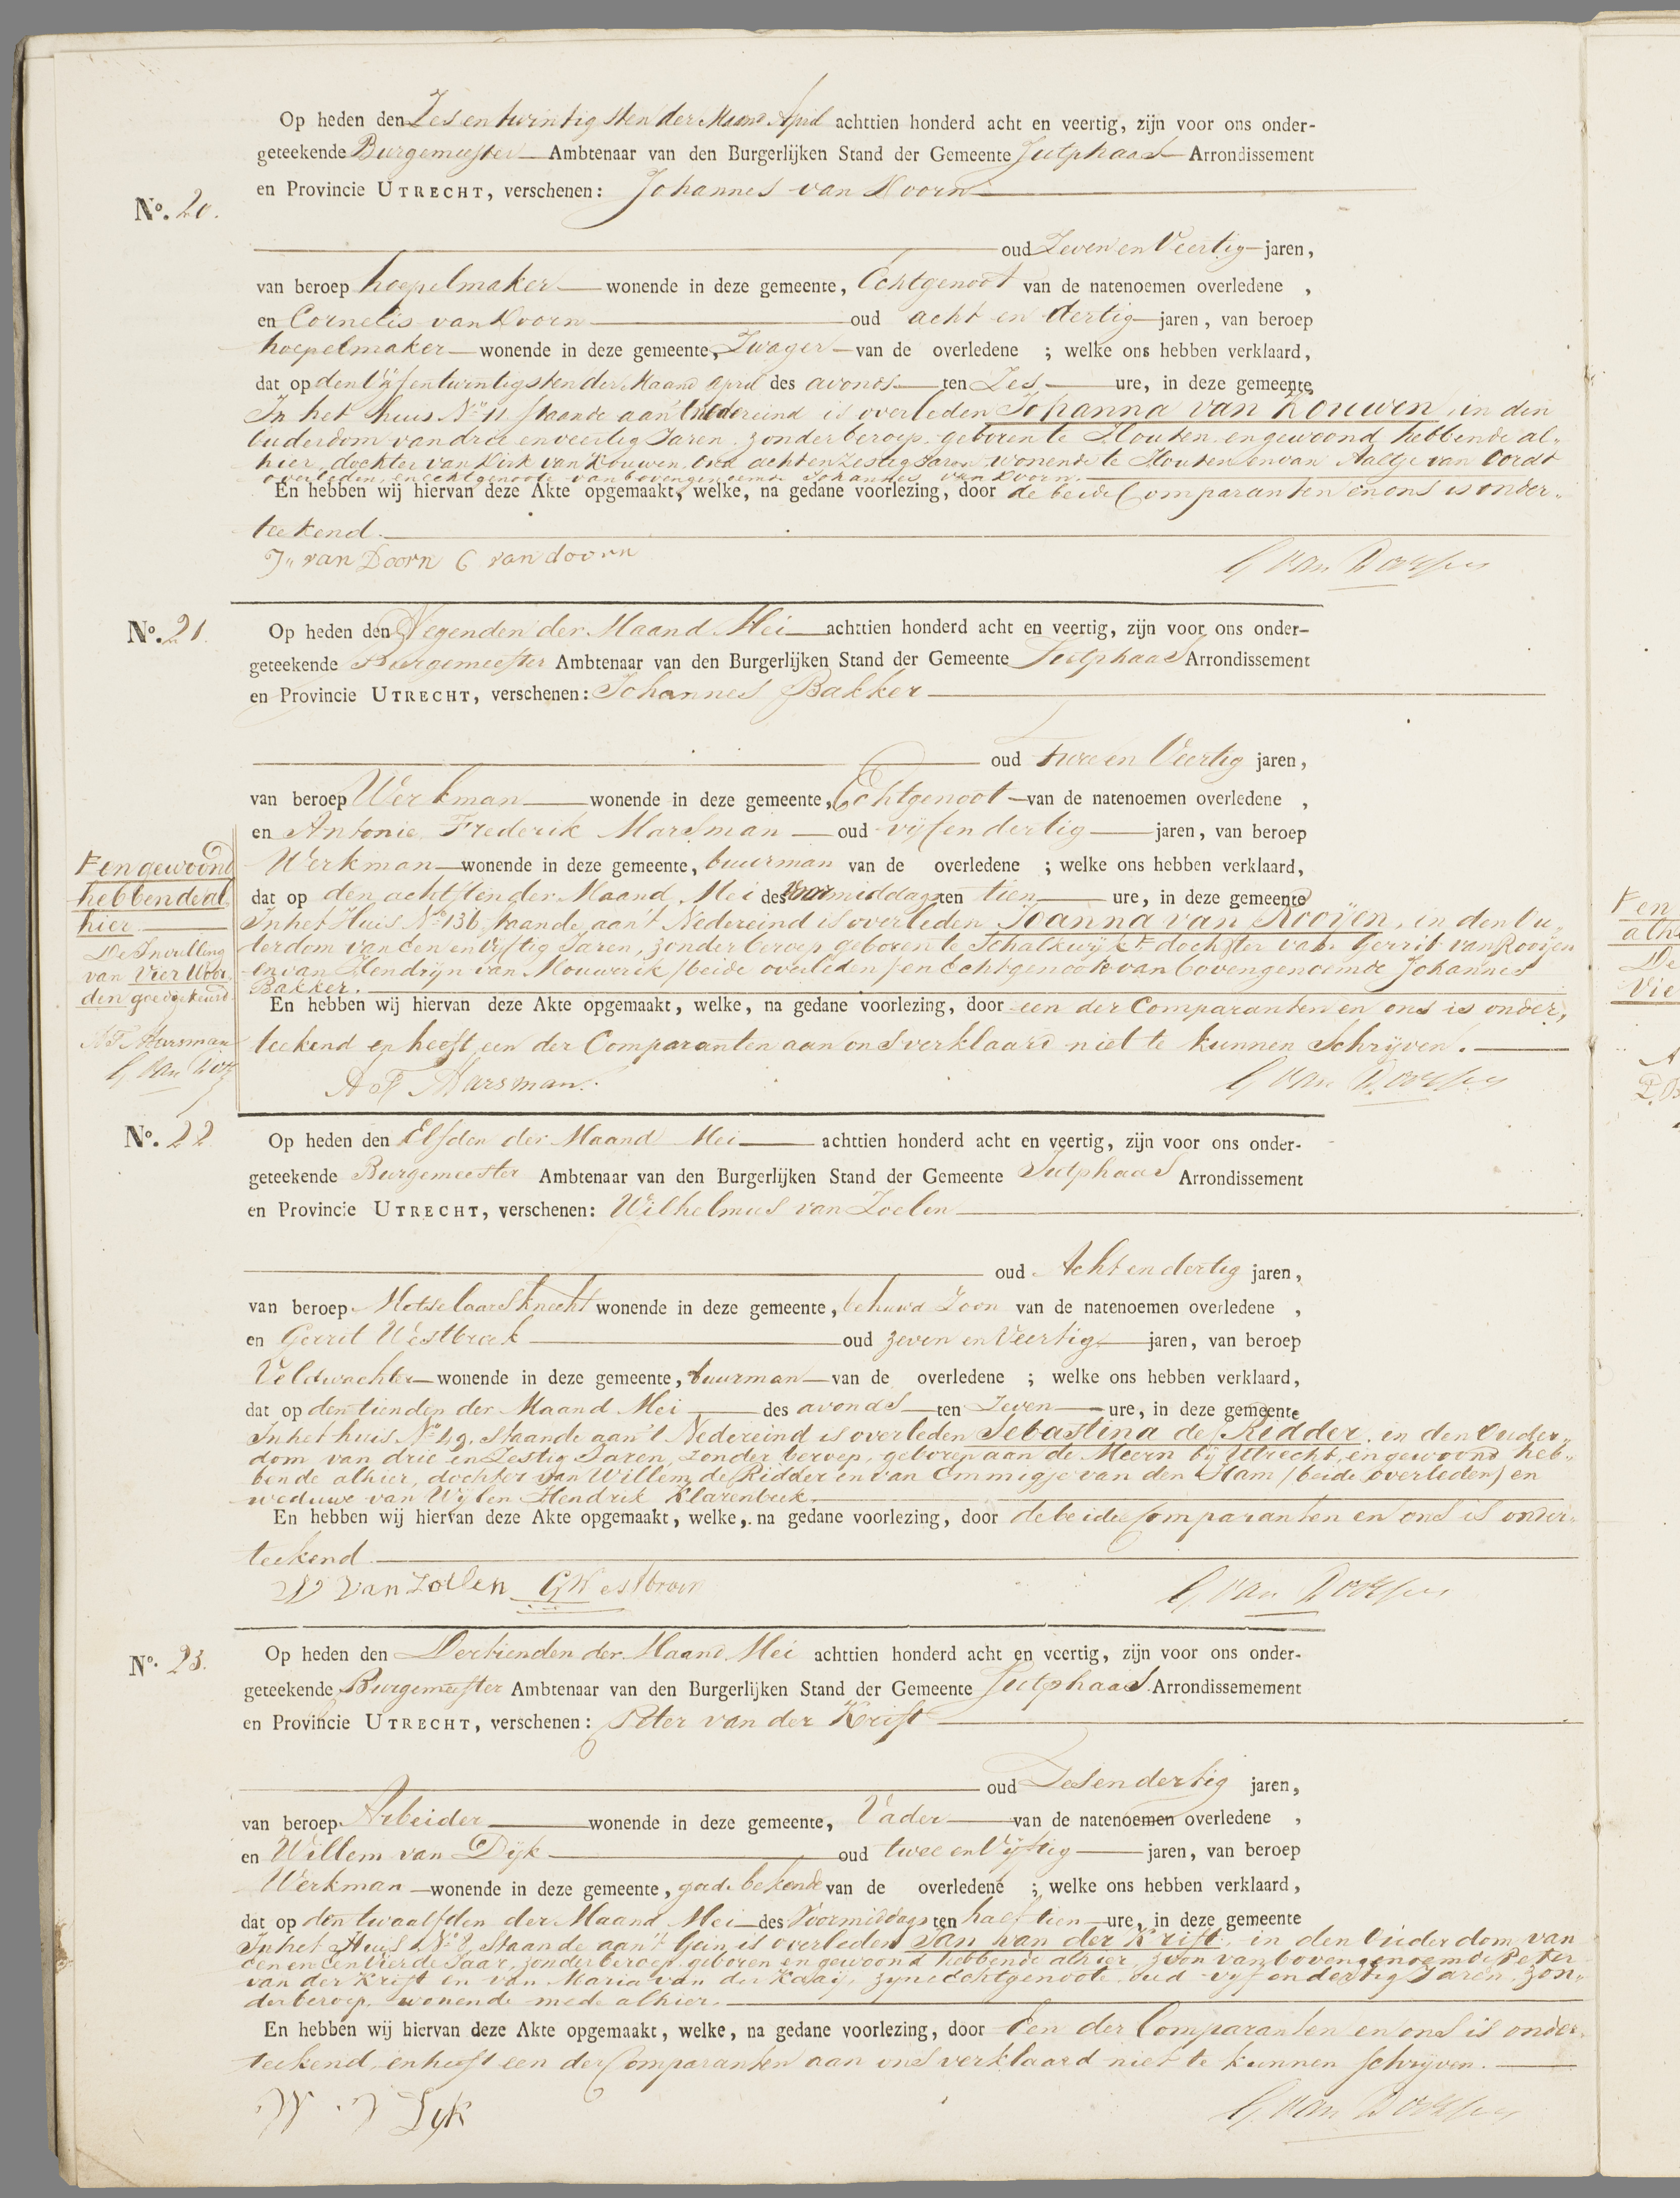 Op heden den Zes en twintigsten der Maand April achttien honderd acht en veertig, zijn voor ons onder-
geteekende Burgemeester Ambtenaar van den Burgerlijken Stand der Gemeente Jutphaas Arrondissement
en Provincie UTRECHT, verschenen: Johannes van Doorn
No. 20.
oud Zeven en Veertig jaren,
van beroep hoepelmaker wonende in deze gemeente, Echtgenoot van de natenoemen overledene ,
en Cornelis van Doorn oud acht en dertig jaren, van beroep
hoepelmaker wonende in deze gemeente, Zwager van de overledene ; welke ons hebben verklaard,
dat op den Vijf en twintigsten der Maand April des avonds ten Zes ure, in deze gemeente
In het huis No 11 staande aan't Nedereind is overleden Johanna van Kouwen, in den
Ouderdom van drie en veertig Jaren, zonder beroep, geboren te Houten en gewoond hebbende al-
hier, dochter van Dirk van Kouwen, Oud acht en Zestig Jaren wonende te Houten en van Aaltje van Oordt
overleden, en echtgenoote van bovengenoemde Johannes van Doorn.
En hebben wij hiervan deze Akte opgemaakt, welke, na gedane voorlezing, door de beide Comparanten en ons is onder-
teekend.
J. van Doorn C van doorn G van Dorssen
No. 21. Op heden den Negenden der Maand Mei achttien honderd acht en veertig, zijn voor ons onder-
geteekende Burgemeester Ambtenaar van den Burgerlijken Stand der Gemeente Jutphaas Arrondissement
en Provincie UTRECHT, verschenen: Johannes Bakker
oud twee en Veertig jaren,
van beroep Werkman wonende in deze gemeente, Echtgenoot van de natenoemen overledene ,
en Antonie Frederik Marsman oud vijf en dertig jaren, van beroep
Werkman wonende in deze gemeente, buurman van de overledene ; welke ons hebben verklaard,
dat op den achtsten der Maand Mei des Voormiddags ten tien ure, in deze gemeente
In het Huis No 136 staande aan't Nedereind is overleden Joanna van Rooijen, in den Ou-
derdom van Een en Vijftig Jaren, zonder beroep geboren te Schalkwijk F dochter van Gerrit van Rooijen
en van Hendrijn van Mouwerik /beide overleden/ en Echtgenoote van bovengenoemde Johannes
Bakker.
En hebben wij hiervan deze Akte opgemaakt, welke, na gedane voorlezing, door een der Comparanten en ons is onder-
teekend en heeft een der Comparanten aan ons verklaard niet te kunnen Schrijven.
A F Marsman. G van Dorssen
F en gewoond
hebbende al
hier
De Invulling
van Vier Woor
den goedgekeurd.
A F Marsman
G van Dors
No. 22 Op heden den Elfden der Maand Mei achttien honderd acht en veertig, zijn voor ons onder-
geteekende Burgemeester Ambtenaar van den Burgerlijken Stand der Gemeente Jutphaas Arrondissement
en Provincie UTRECHT, verschenen: Wilhelmus van Zoelen
oud Acht en dertig jaren,
van beroep Metselaarsknecht wonende in deze gemeente, behuwd Zoon van de natenoemen overledene ,
en Gerrit Westbroek oud zeven en Veertig jaren, van beroep
Veldwachter wonende in deze gemeente, buurman van de overledene ; welke ons hebben verklaard,
dat op den tienden der Maand Mei des avonds ten Zeven ure, in deze gemeente
In het huis No 49. Staande aan't Nedereind is overleden Sebastina de Ridder, in den Ouder-
dom van drie en Zestig Jaren, zonder beroep, geboren aan de Meern bij Utrecht, en gewoond heb-
bende alhier, dochter van Willem de Ridder en van Emmigje van den Ham /beide overleden/ en
weduwe van Wijlen Hendrik Klarenbeek.
En hebben wij hiervan deze Akte opgemaakt, welke, na gedane voorlezing, door de beide Comparanten en ons is onder-
teekend
W van Zoelen G Westbroek G van Dorssen
No. 23. Op heden den Dertienden der Maand Mei achttien honderd acht en veertig, zijn voor ons onder-
geteekende Burgemeester Ambtenaar van den Burgerlijken Stand der Gemeente Jutphaas Arrondissemement
en Provincie UTRECHT, verschenen: Peter van der Krift
oud Zes en dertig jaren,
van beroep Arbeider wonende in deze gemeente, Vader van de natenoemen overledene ,
en Willem van Dijk oud twee en Vijftig jaren, van beroep
Werkman wonende in deze gemeente, goede bekende van de overledene ; welke ons hebben verklaard,
dat op den twaalfden der Maand Mei des Voormiddags ten half tien ure, in deze gemeente
In het Huis No 8 Staande aan't Gein is overleden Jan van der Krift, in den Ouderdom van
een en een Vierde Jaar, zonder beroep, geboren en gewoond hebbende alhier, zoon van bovengenoemde Peter
van der Krift en van Maria van der Kaaij, zyne Echtgenoote oud vijf en dertig Jaren, zon-
der beroep, wonende mede alhier.
En hebben wij hiervan deze Akte opgemaakt, welke, na gedane voorlezing, door Een der Comparanten en ons is onder-
teekend, en heeft een der Comparanten aan ons verklaard niet te kunnen schrijven.
W v Dijk G van Dorssen
F en
alh
De
Vie